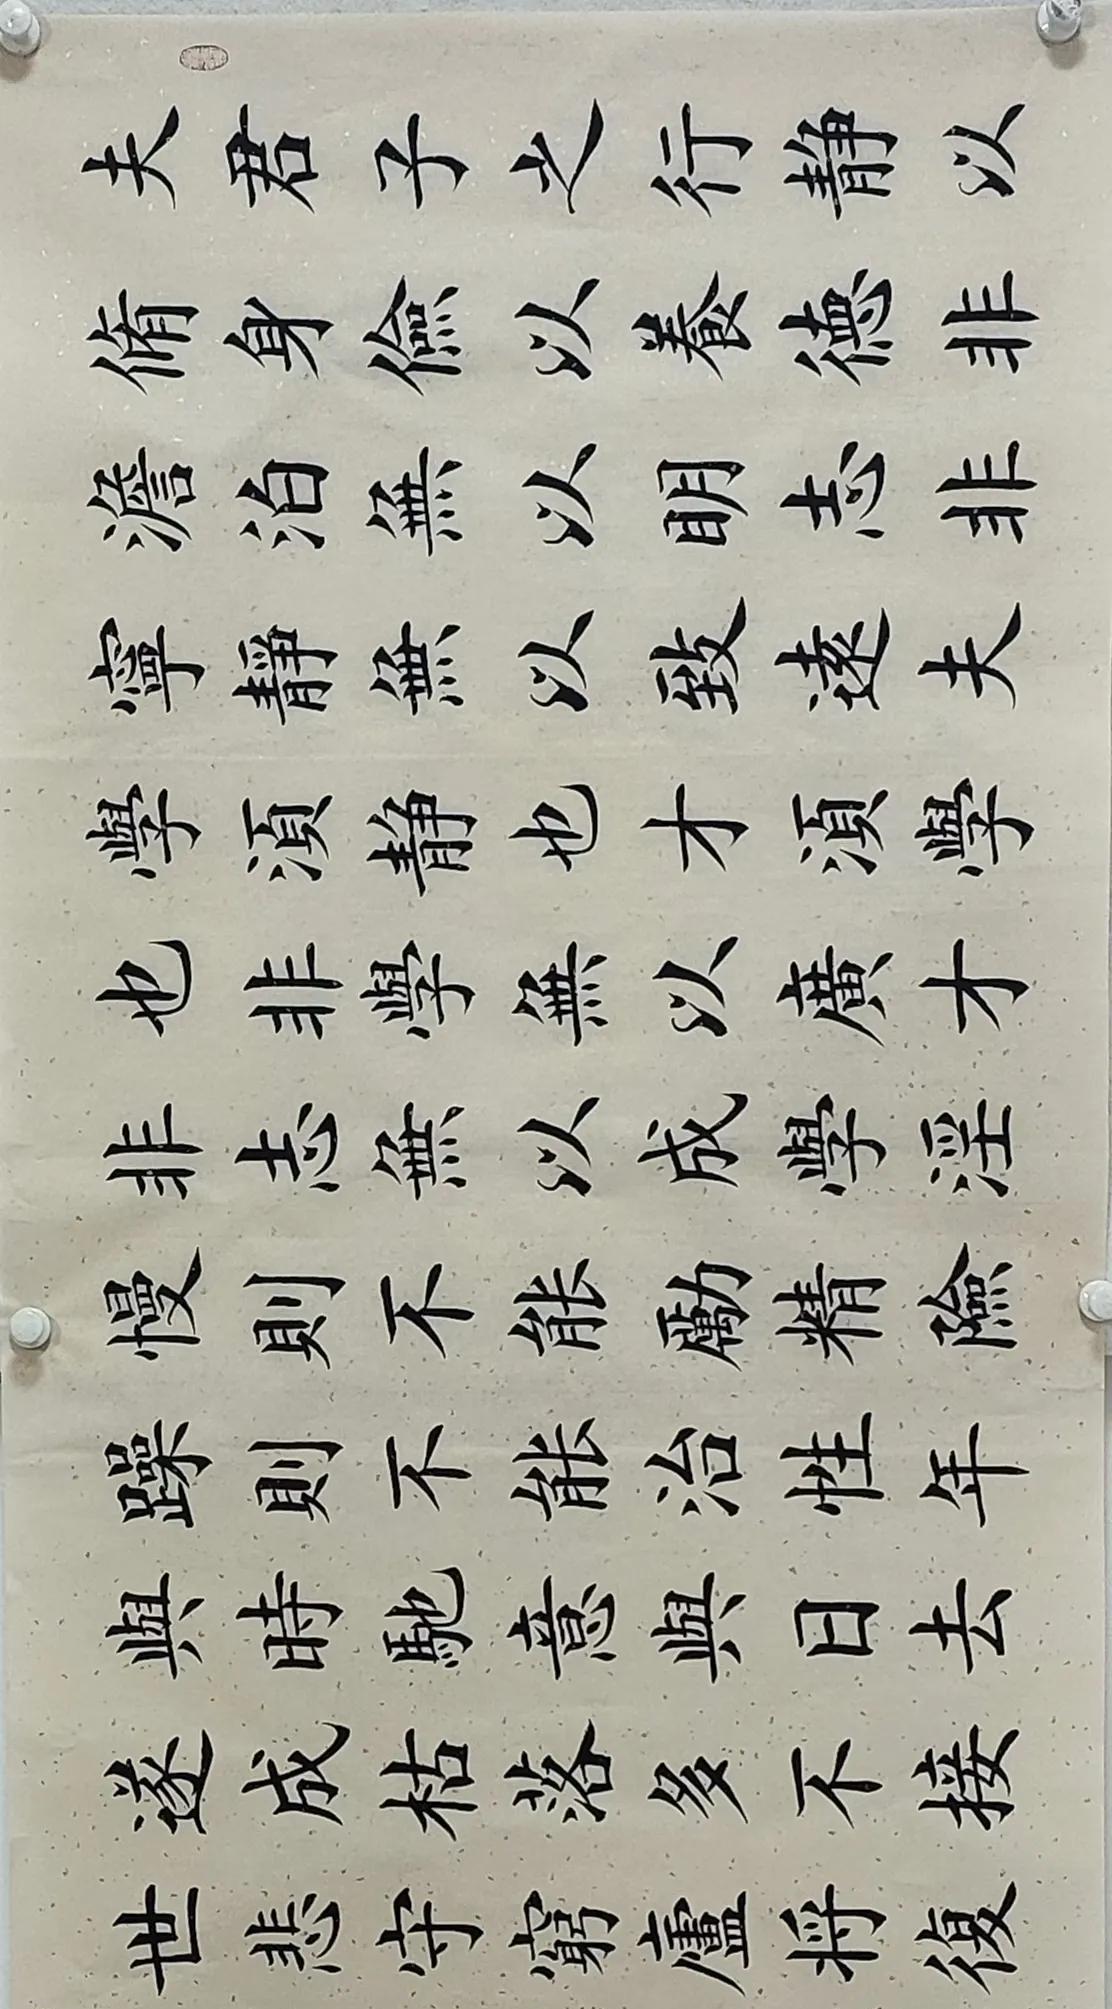 夫君子之行静以
脩身儉以養德非
澹泊無以明志非
寧靜無以致遠夫
學湏静也才湏學
也非學無以廣才
非志無以成學淫
慢則不能勵精險
躁則不能治性年
與時馳意與日去
遂成枯落多不接
世悲守窮廬将復